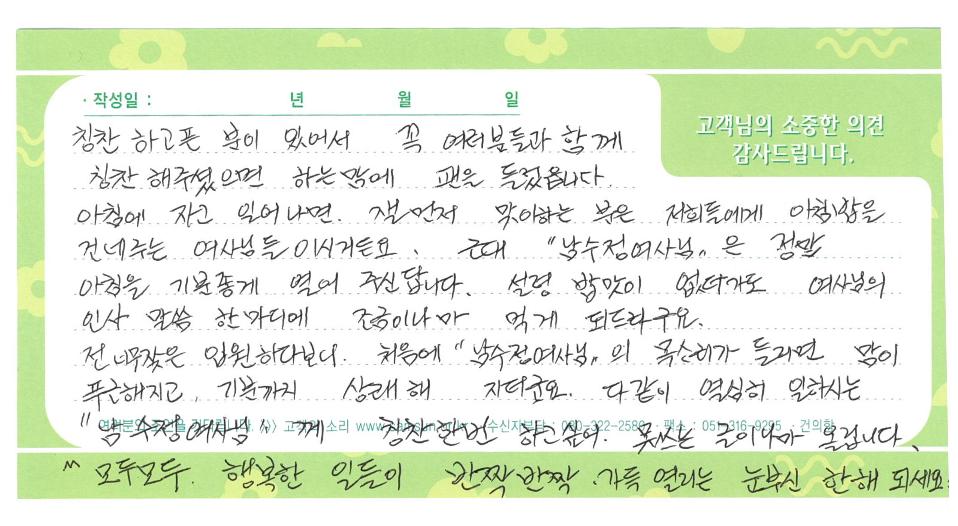 · 작성일 : 년 월 일
고객님의 소중한 의견
감사드립니다.
칭찬 하고픈 분이 있어서 꼭 여러분들과 함께
칭찬 해주셨으면 하는맘에 펜을 들었읍니다.
아침에 자고 일어나면. 젤먼저 맞이하는 분은 저희들에게 아침밥을
건네주는 여사님들이시거든요. 근데 "남수정여사님" 은 정말
아침을 기분좋게 열어 주신답니다. 설령 밥맛이 없다가도 여사님의
인사 말씀 한마디에 조금이나마 먹게 되드라구요.
전 너무잦은 입원하다보니. 처음에 "남수정여사님" 의 목소리가 들리면 맘이
푸근해지고, 기분까지 상쾌해 지더군요. 다같이 열심히 일하시는
"남수정여사님" 께 칭찬한번 하고싶어. 못쓰는 글이나마 올립니다.
고객의 소리 수신자부담 : 080-322-2580 · 팩스 : 051-316-9295 · 건의함
" 모두모두. 행복한 일들이 반짝반짝 가득 열리는 눈부신 한해 되세요